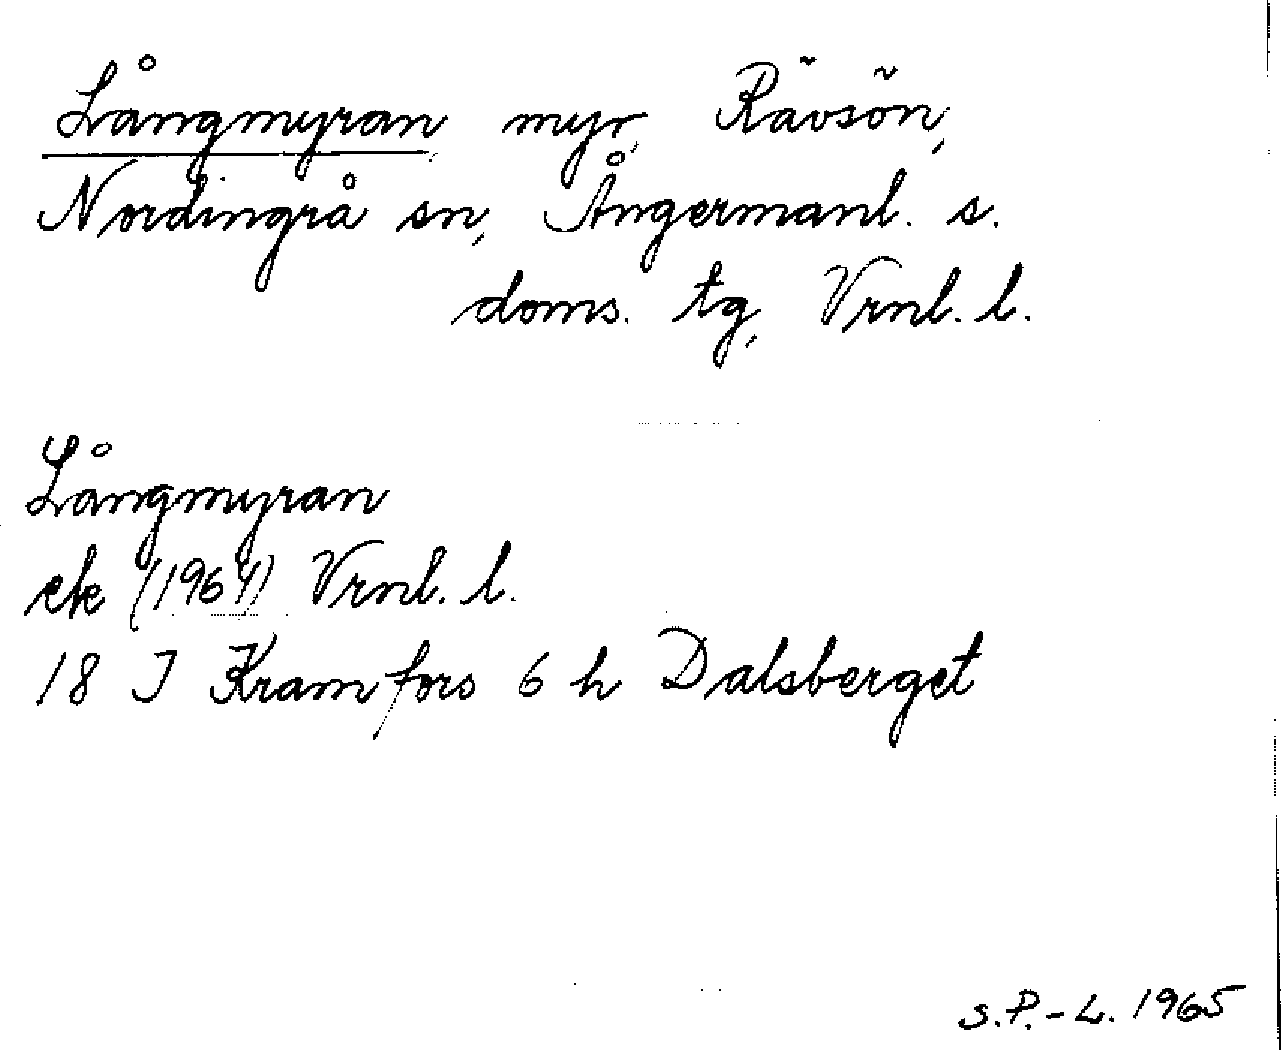 Långmyran, myr, Rävsön,
Nordingrå sn, Ångermanl. s.
doms. tg, Vrnl. l.
Långmyran
ek (1964) Vrnl. l.
18 I Kramfors 6 h Dalsberget
S.P.-L. 1965